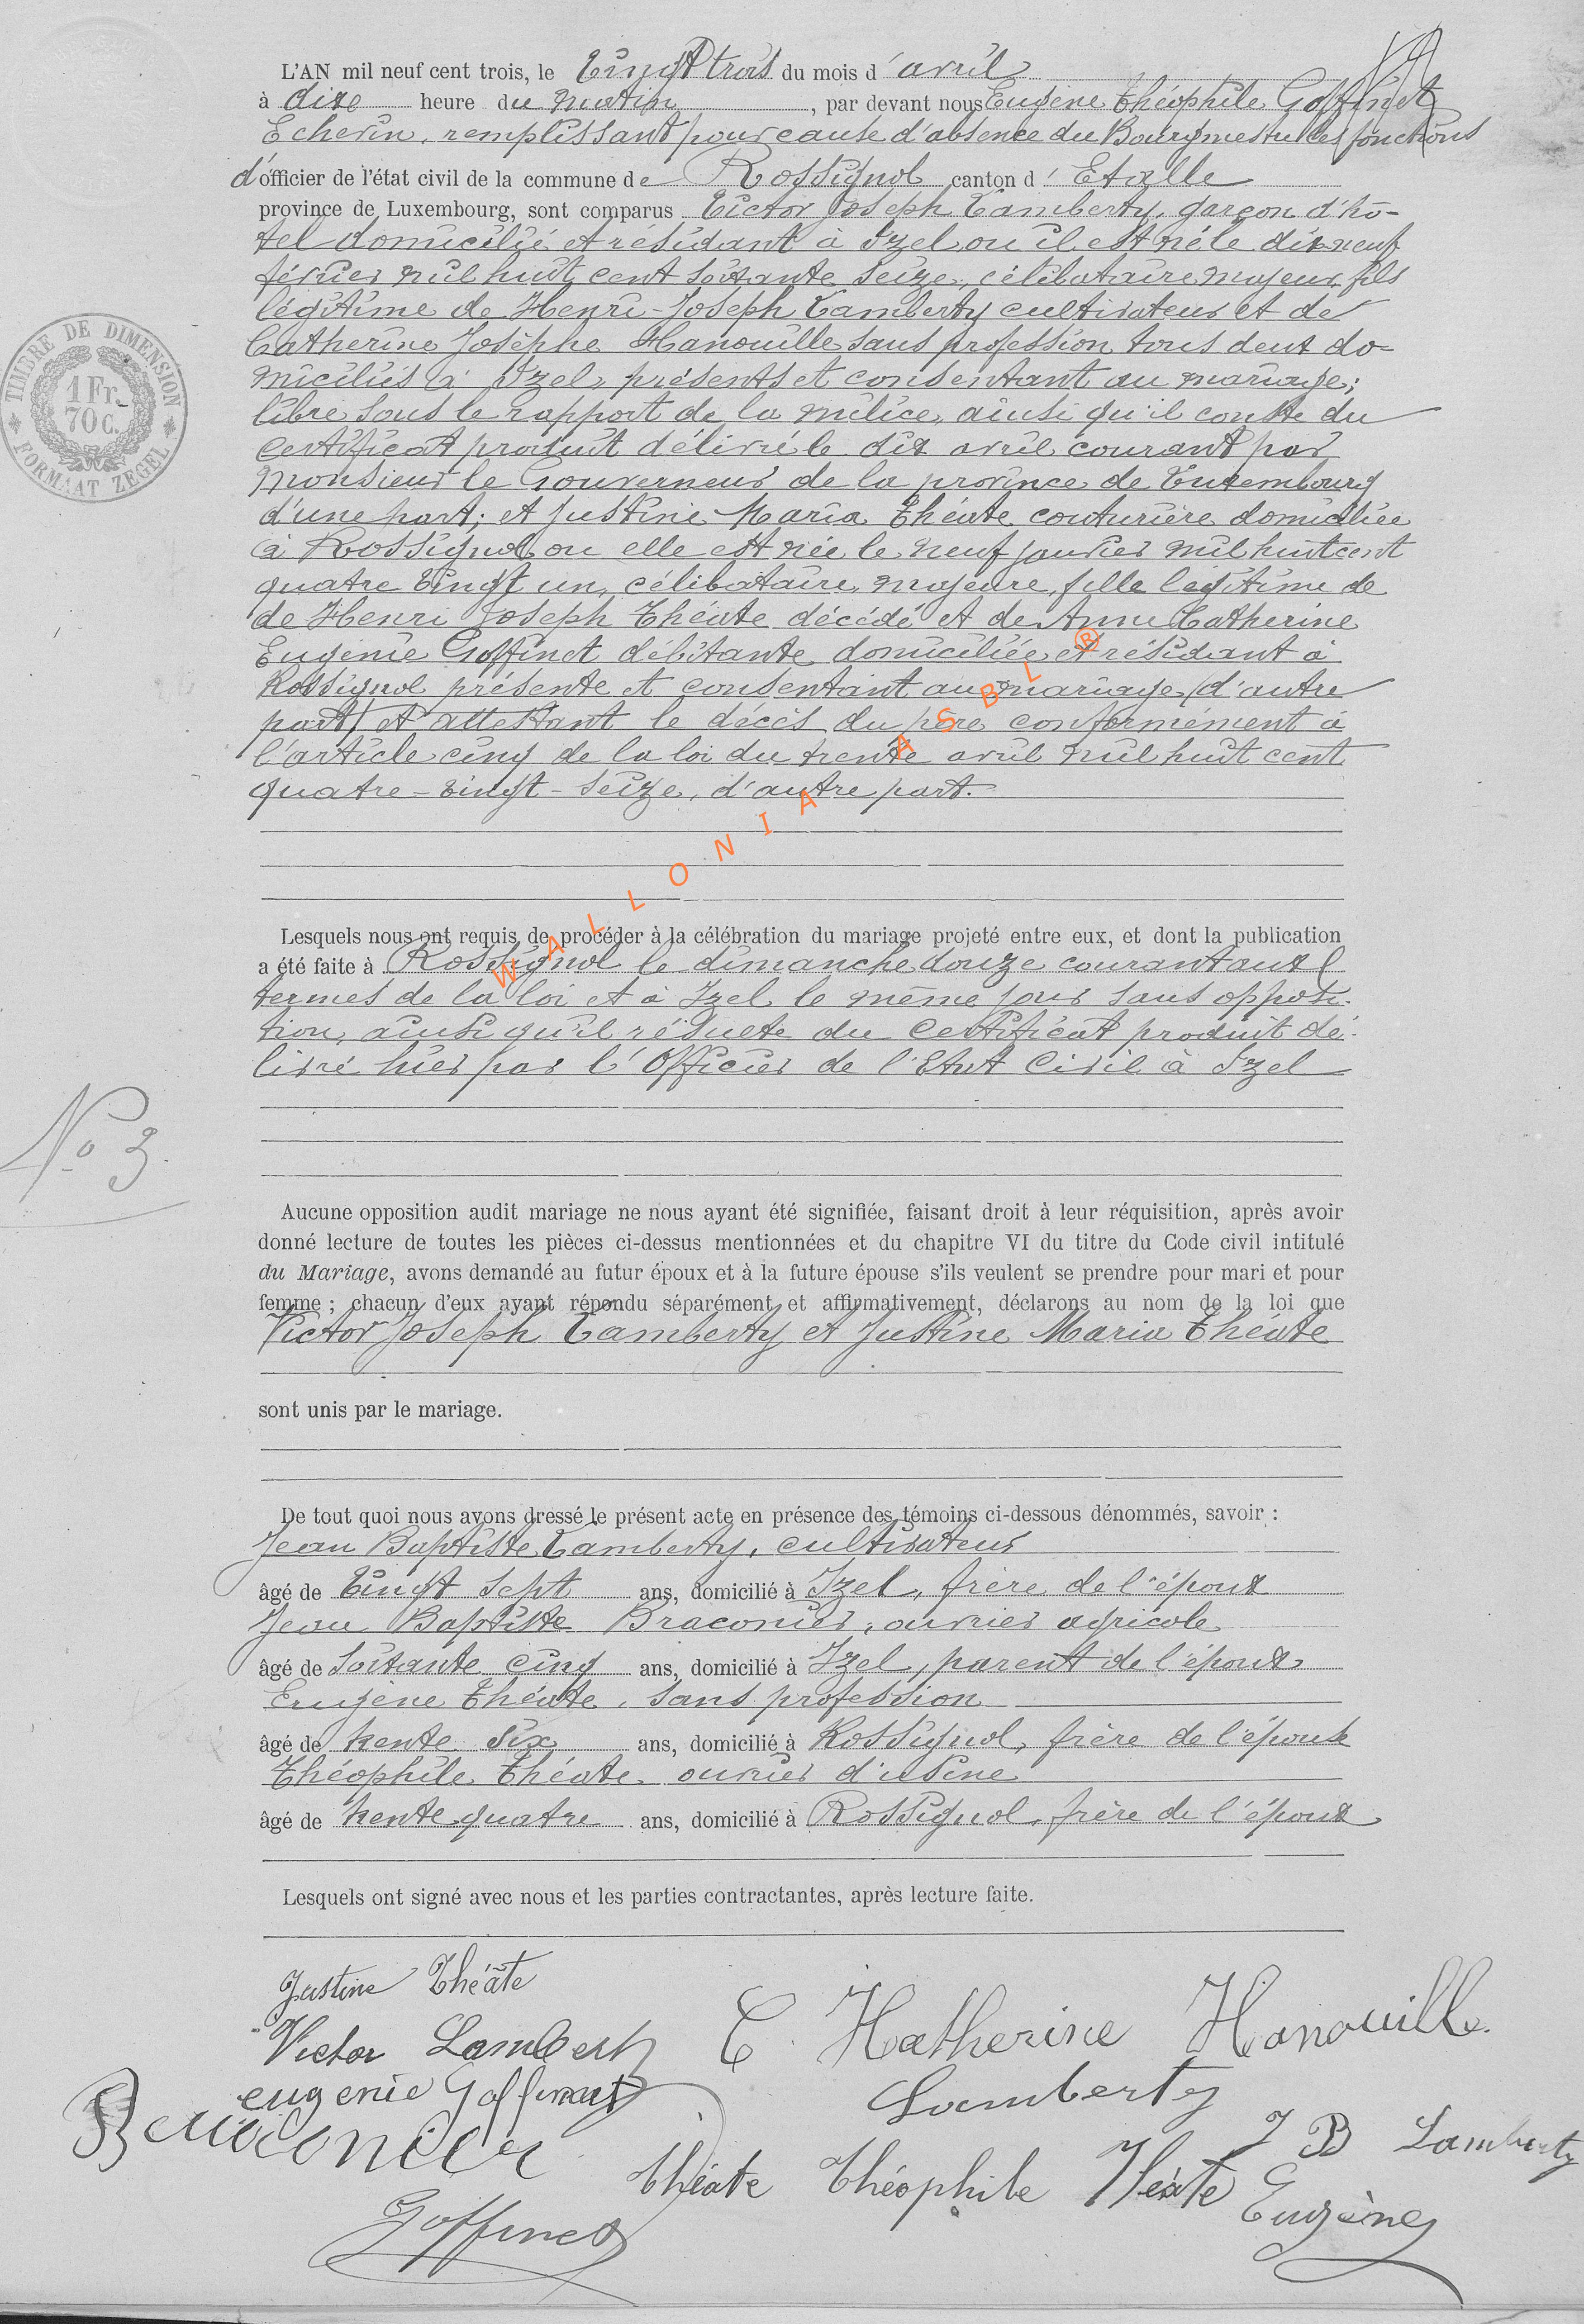 L'AN mil neuf cent trois, le Vingt trois du mois d'avril
à dixe heure du matin, par devant nous Eugène Théophile Goffinet
Echevin, remplissant pour cause d'absence du Bourgmestre les fonctions
d'officier de l'état civil de la commune de Rossignol canton d'Etalle
province de Luxembourg, sont comparus Victor Joseph Lamberty, garçon d'hô-
tel domicilié et résidant à Izel, où il est né le dix-neuf
février mil huit cent soixante seize, célibataire majeur, fils
légitime de Henri-Joseph Lamberty cultivateur et de
Catherine Josèphe Hanouille sans profession tous deux do-
miciliés à Izel, présents et consentant au mariage;
libre sous le rapport de la milice, ainsi qu'il conste du
certificat produit délivré le dix avril courant par
Monsieur le Gouverneur de la province de Luxembourg
d'une part; et Justine Maria Théate couturière domiciliée
à Rossignol où elle est née le neuf janvier mil huit cent
quatre vingt un, célibataire, majeure, fille légitime de
de Henri Joseph Théate décédé et de Anne Catherine
Eugénie Goffinet débitante domiciliée et résidant à
Rossignol présente et consentant au mariage, d'autre
part, et attestant le décès du père conformément à
l'article cinq de la loi du trente avril mil huit cent
quatre-vingt-seize, d'autre part.
Lesquels nous ont requis de procéder à la célébration du mariage projeté entre eux, et dont la publication
a été faite à Rossignol le dimanche douze courant aux
termes de la loi et à Izel le même jour sans opposi-
tion, ainsi qu'il résulte du certificat produit dé-
livré hier par l'Officier de l'Etat Civil à Izel
N° 3
Aucune opposition audit mariage ne nous ayant été signifiée, faisant droit à leur réquisition, après avoir
donné lecture de toutes les pièces ci-dessus mentionnées et du chapitre VI du titre du Code civil intitulé
du Mariage, avons demandé au futur époux et à la future épouse s'ils veulent se prendre pour mari et pour
femme ; chacun d'eux ayant répondu séparément et affirmativement, déclarons au nom de la loi que
Victor Joseph Lamberty et Justine Maria Théate
sont unis par le mariage.
De tout quoi nous avons dressé le présent acte en présence des témoins ci-dessous dénommés, savoir :
Jean Baptiste Lamberty, cultivateur
âgé de Vingt sept ans, domicilié à Izel, frère de l'époux
Jean Baptiste Braconier, ouvrier agricole
âgé de Soixante cinq ans, domicilié à Izel, parent de l'époux
Eugène Théate, sans profession
âgé de trente six ans, domicilié à Rossignol, frère de l'épouse
Théophile Théate, ouvrier d'usine
âgé de trente quatre ans, domicilié à Rossignol, frère de l'époux
Lesquels ont signé avec nous et les parties contractantes, après lecture faite.
Justine Théâte
Victor Lamberty C. Hatherine Hanouille
eugenie Goffinet Lamberty
Braconier J B Lamberty
Théate Théophile Théate Eugène
Goffinet
TIMBRE DE DIMENSION
1 Fr.
70 C.
FORMAAT ZEGEL
WALLONIA ASBL ®